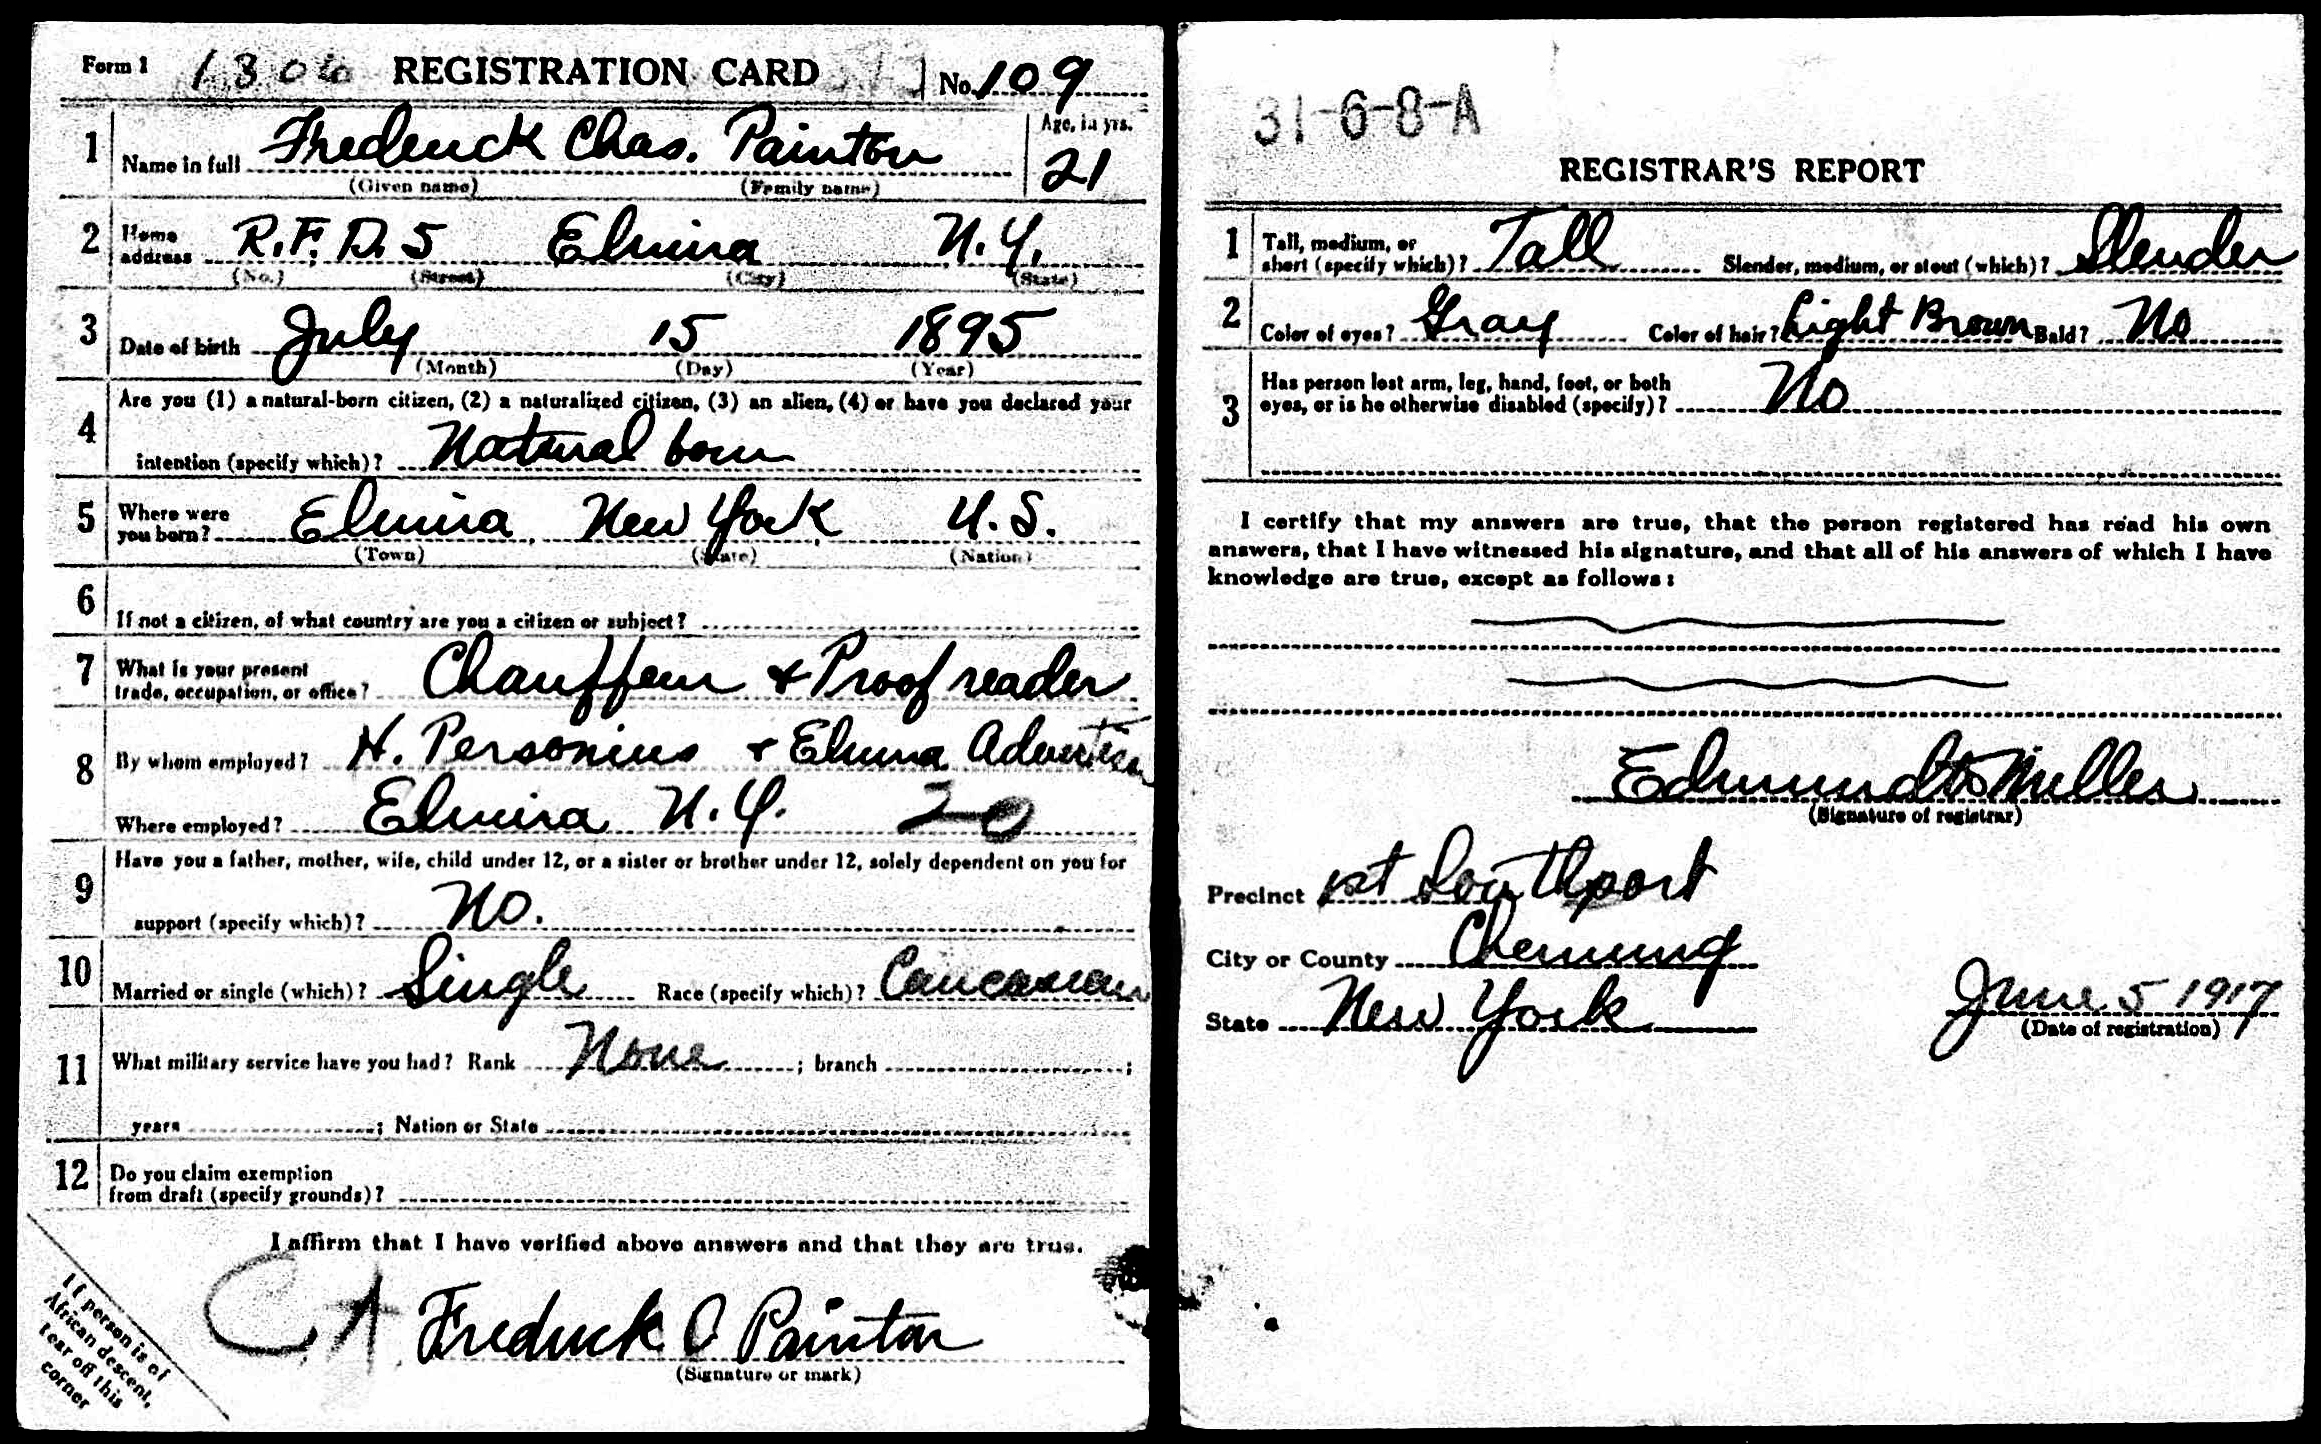 Form 1 1306 REGISTRATION CARD No. 109
1 Name in full Frederick Chas. Painton Age, in yrs. 21
(Given name) (Family name)
2 Home address R.F.D. 5 Elmira N.Y.
(No.) (Street) (City) (State)
3 Date of birth July 15 1895
(Month) (Day) (Year)
4 Are you (1) a natural-born citizen, (2) a naturalized citizen, (3) an alien, (4) or have you declared your
intention (specify which)? Natural born
5 Where were you born? Elmira, New York U.S.
(Town) (State) (Nation)
6 If not a citizen, of what country are you a citizen or subject?
7 What is your present trade, occupation, or office? Chauffeur & Proof reader
8 By whom employed? H. Personius & Elmira Advertiser
Where employed? Elmira N.Y. 20
9 Have you a father, mother, wife, child under 12, or a sister or brother under 12, solely dependent on you for
support (specify which)? No.
10 Married or single (which)? Single Race (specify which)? Caucasian
11 What military service have you had? Rank None ; branch ;
years ; Nation or State
12 Do you claim exemption
from draft (specify grounds)?
I affirm that I have verified above answers and that they are true.
C.A. Frederick C Painton
(Signature or mark)
If person is of
African descent,
tear off this
corner
31-6-8-A
REGISTRAR'S REPORT
1 Tall, medium, or short (specify which)? Tall Slender, medium, or stout (which)? Slender
2 Color of eyes? Gray Color of hair? Light Brown Bald? No
3 Has person lost arm, leg, hand, foot, or both
eyes, or is he otherwise disabled (specify)? No
I certify that my answers are true, that the person registered has read his own
answers, that I have witnessed his signature, and that all of his answers of which I have
knowledge are true, except as follows:
Edmund Miller
(Signature of registrar)
Precinct 1st Southport
City or County Chemung
State New York June 5 1917
(Date of registration)